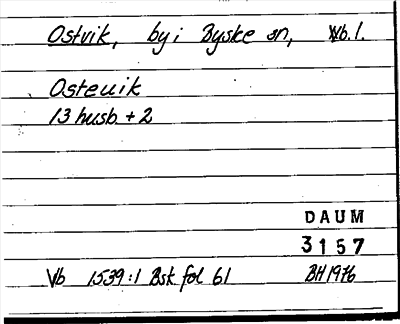 Ostvik, by i Byske sn, Vb. l.
Osteuik
13 husb. + 2
DAUM
3157
Vb 1539:1 Bsk fol 61 BH 1976